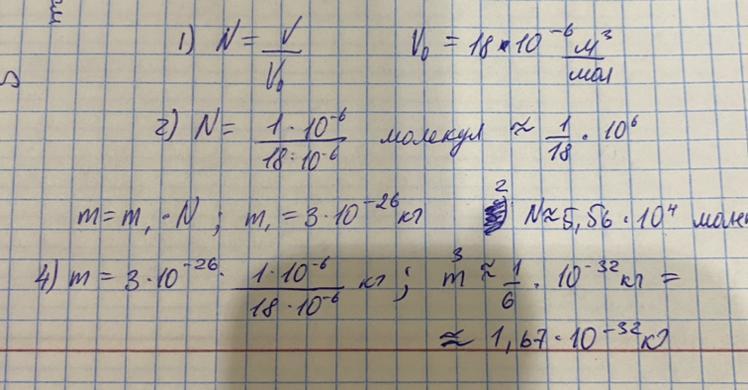 1) N = V/V₀ V₀ = 18 · 10⁻⁶ м³/мол
2) N = 1 · 10⁻⁶/18 · 10⁻⁶ молекул ≈ 1/18 · 10⁶
m = m₁ · N ; m₁ = 3 · 10⁻²⁶ кг 2 N ≈ 5,56 · 10⁴
4) m = 3 · 10⁻²⁶ · 1 · 10⁻⁶/18 · 10⁻⁶ кг ; 3 m ≈ 1/6 · 10⁻³² кг =
≈ 1,67 · 10⁻³² кг